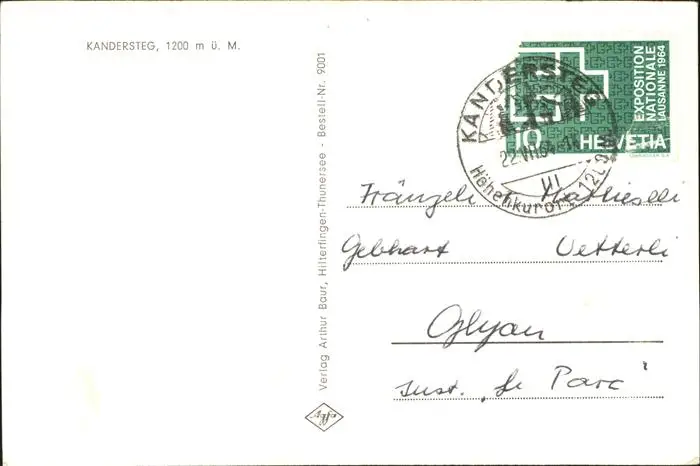 KANDERSTEG, 1200 m ü. M.
Verlag Arthur Baur, Hilterfingen-Thunersee - Bestell-Nr. 9001
Agfa
EXPOSITION
NATIONALE
LAUSANNE 1964
10 HELVETIA
KANDERSTEG
22.VII.64
Höhenkurort 1200m
Fränzeli Mathiesli
Gebhart Vetterli
Glyan
Inst. „Le Parc"